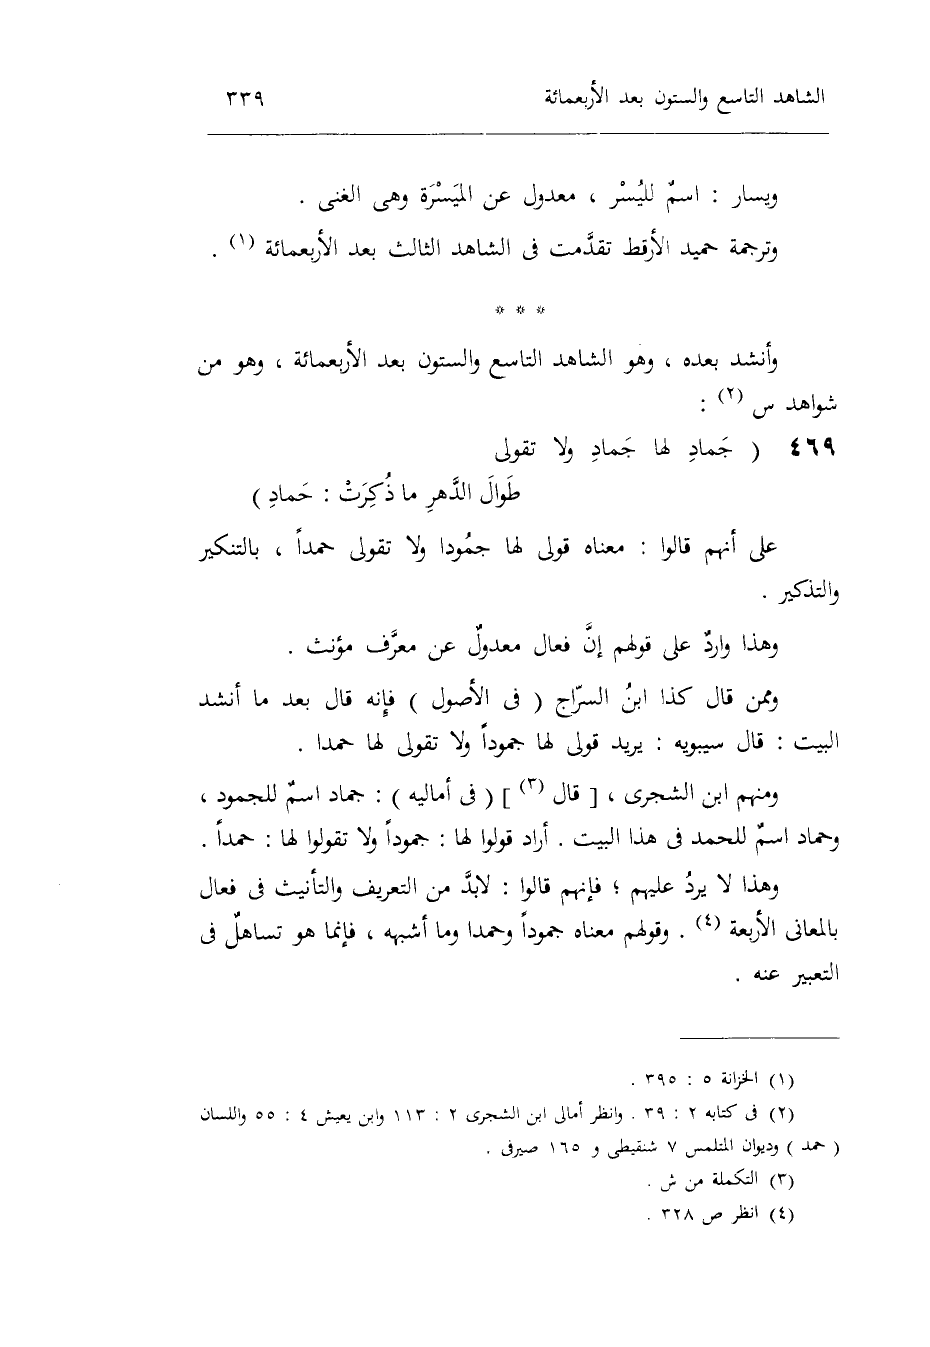 الشاهد التاسع والستون بعد الأربعمائة ٣٣٩
ويسار : اسمٌ لليُسْر ، معدول عن المَيَسْرَة وهى الغنى .
وترجمة حميد الأرقط تقدَّمت فى الشاهد الثالث بعد الأربعمائة (١) .
* * *
وأنشد بعده ، وهو الشاهد التاسع والستون بعد الأربعمائة ، وهو من
شواهد س (٢) :
٤٦٩ ( جَمادِ لها جَمادِ ولا تقولى
طَوالَ الدَّهرِ ما ذُكِرَتْ : حَمادِ )
على أنهم قالوا : معناه قولى لها جمُودا ولا تقولى حمداً ، بالتنكير
والتذكير .
وهذا واردٌ على قولهم إنَّ فعال معدولٌ عن معرَّف مؤنث .
وممن قال كذا ابنُ السرّاج ( فى الأصول ) فإنه قال بعد ما أنشد
البيت : قال سيبويه : يريد قولى لها جموداً ولا تقولى لها حمدا .
ومنهم ابن الشجرى ، [ قال (٣) ] ( فى أماليه ) : جماد اسمٌ للجمود ،
وحماد اسمٌ للحمد فى هذا البيت . أراد قولوا لها : جموداً ولا تقولوا لها : حمداً .
وهذا لا يردُ عليهم ؛ فإنهم قالوا : لابدَّ من التعريف والتأنيث فى فعال
بالمعانى الأربعة (٤) . وقولهم معناه جموداً وحمدا وما أشبهه ، فإنما هو تساهلٌ فى
التعبير عنه .
(١) الخزانة ٥ : ٣٩٥ .
(٢) فى كتابه ٢ : ٣٩ . وانظر أمالى ابن الشجرى ٢ : ١١٣ وابن يعيش ٤ : ٥٥ واللسان
( حمد ) وديوان المتلمس ٧ شنقيطى و ١٦٥ صيرفى .
(٣) التكملة من ش .
(٤) انظر ص ٣٢٨ .